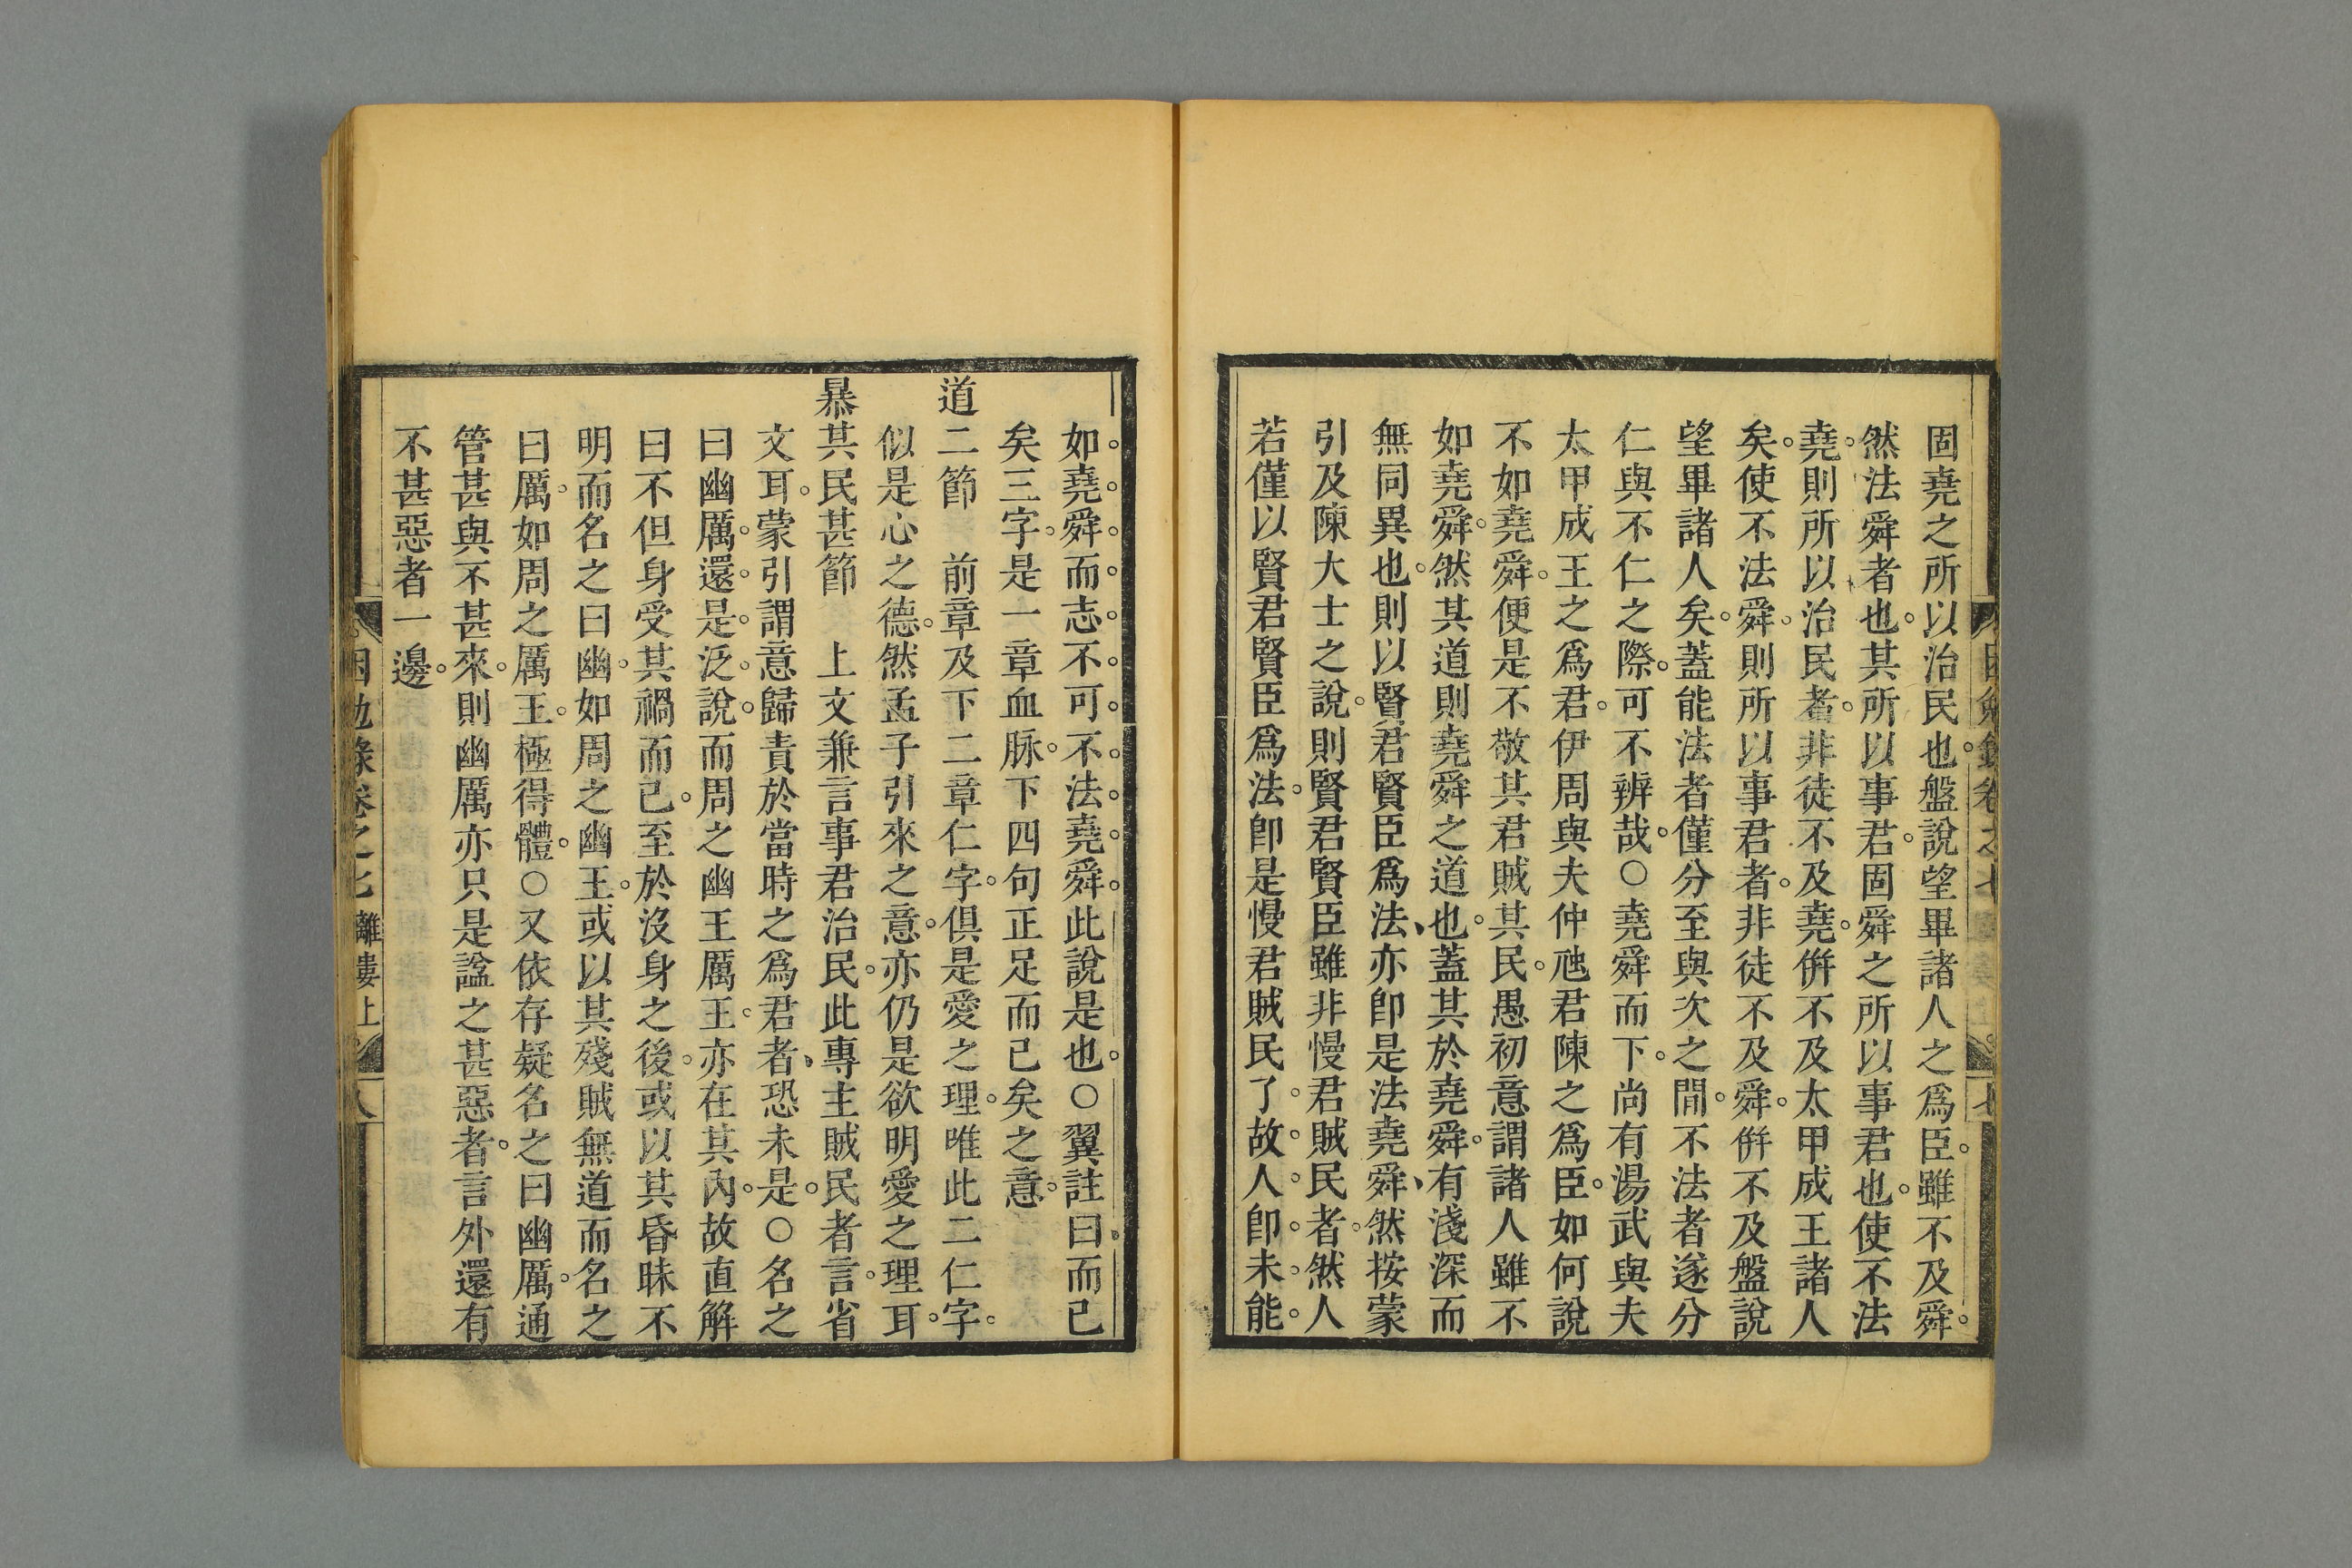 固堯之所以治民也盤說望畢諸人之為臣雖不及舜
然法舜者也其所以事君固舜之所以事君也使不法
堯則所以治民者非徒不及堯併不及太甲成王諸人
矣使不法舜則所以事君者非徒不及舜併不及盤說
望畢諸人矣蓋能法者僅分至與次之間不法者遂分
仁與不仁之際可不辨哉○堯舜而下尚有湯武與夫
太甲成王之為君伊周與夫仲虺君陳之為臣如何說
不如堯舜便是不敬其君賊其民愚初意謂諸人雖不
如堯舜然其道則堯舜之道也蓋其於堯舜有淺深而
無同異也則以賢君賢臣為法亦卽是法堯舜然按蒙
引及陳大士之說則賢君賢臣雖非慢君賊民者然人
若僅以賢君賢臣為法卽是慢君賊民了故人卽未能
如堯舜而志不可不法堯舜此說是也○翼註曰而已
矣三字是一章血脉下四句正足而已矣之意
道二節　前章及下二章仁字俱是愛之理唯此二仁字
似是心之德然孟子引來之意亦仍是欲明愛之理耳
暴其民甚節　上文兼言事君治民此專主賊民者言省
文耳蒙引謂意歸責於當時之為君者恐未是○名之
曰幽厲還是泛說而周之幽王厲王亦在其內故直解
曰不但身受其禍而已至於沒身之後或以其昏昧不
明而名之曰幽如周之幽王或以其殘賊無道而名之
曰厲如周之厲王極得體○又依存疑名之曰幽厲通
管甚與不甚來則幽厲亦只是諡之甚惡者言外還有
不甚惡者一邊
困勉錄卷之七　離婁上　八